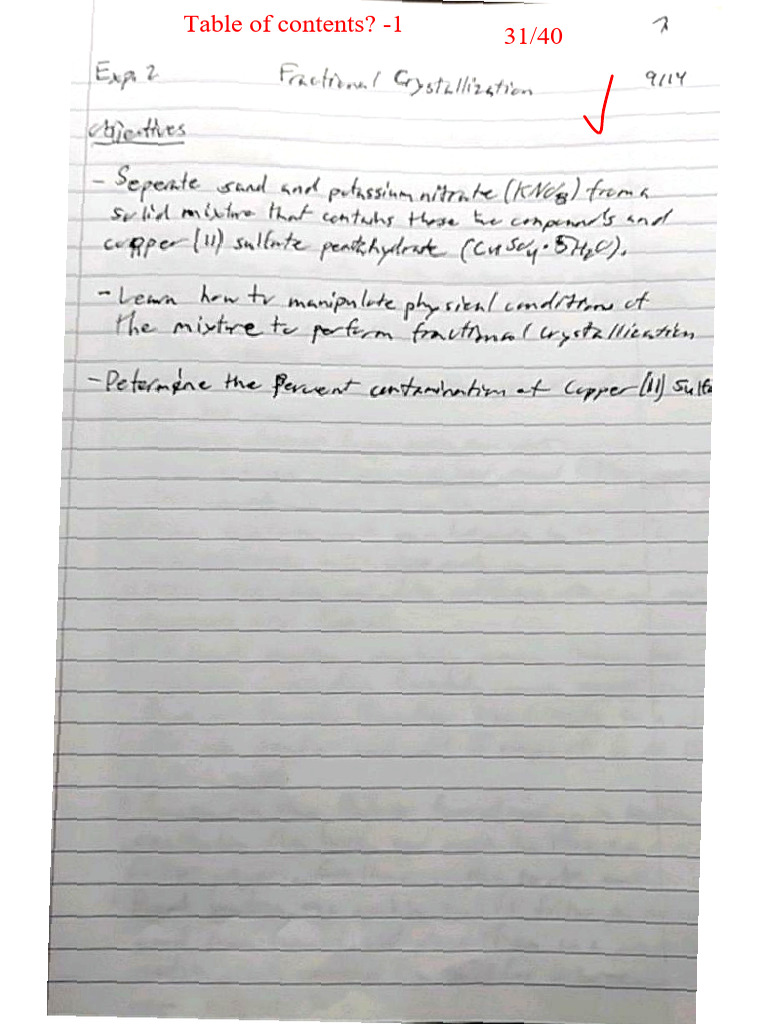 Table of contents? -1
31/40
Exp. 2 Fractional Crystallization 9/14
Objectives
- Seperate sand and potassium nitrate (KNO3) from a
solid mixture that contains these two compounds and
copper (II) sulfate pentahydrate (CuSO4·5H2O).
- Learn how to manipulate physical conditions of
the mixture to perform fractional crystallization
- Determine the percent contamination of copper (II) sulfa